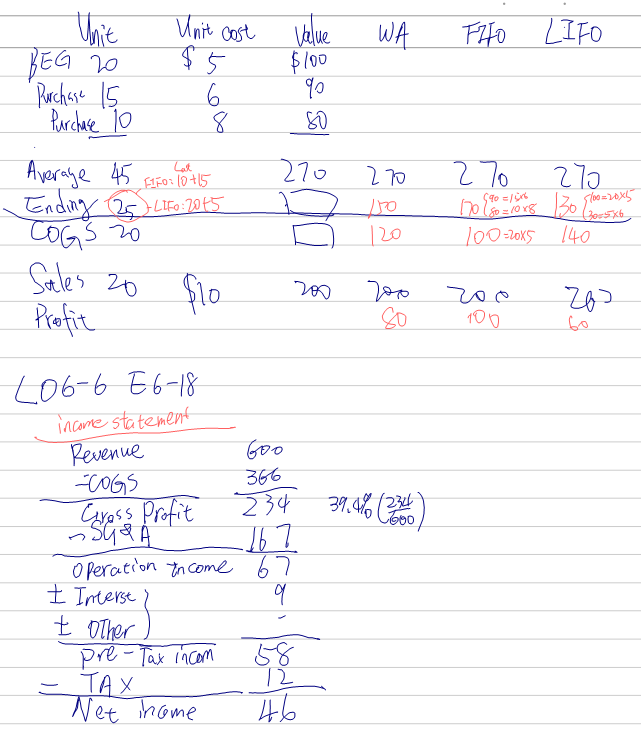 Unit Unit cost Value WA FIFO LIFO
BEG 20 $ 5 $100
Purchase 15 6 90
Purchase 10 8 80
Average 45 270 270 270 270
FIFO: 10+15
Ending 25 LIFO: 20+5 150 170 {90=15x6 80=10x8 130 {100=20x5 30=5x6
COGS 20 120 100=20x5 140
Sales 20 $10 200 200 200 200
Profit 80 100 60
LO6-6 E6-18
income statement
Revenue 600
-COGS 366
Gross Profit 234 39.4% (234/600)
- SG&A 167
Operation income 67
± Interst 9
± Other -
Pre-Tax incom 58
= TAX 12
Net income 46